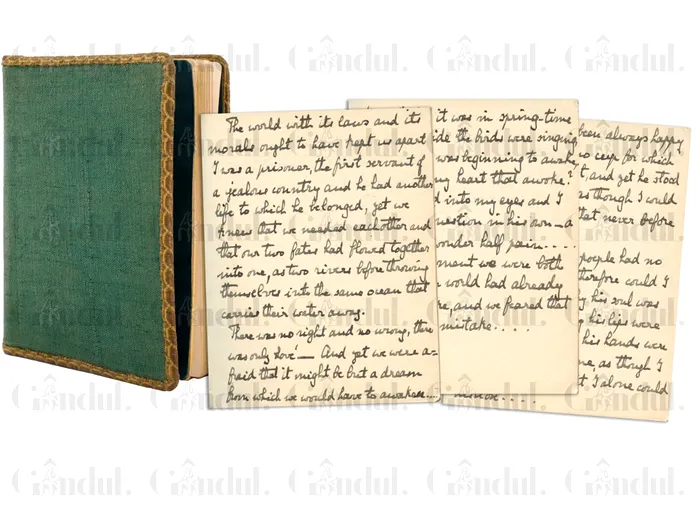 The world with its laws and its
morals ought to have kept us apart
I was a prisoner, the first servant of
a jealous country and he had another
life to which he belonged, yet we
knew that we needed eachother and
that our two fates had flowed together
into one, as two rivers before throwing
themselves into the same ocean that
carries their water away.
There was no right and no wrong, there
was only love'— And yet we were a-
fraid that it might be but a dream
from which we would have to awaken....
it was in spring-time
ide the birds were singing
was beginning to awake
my heart that awoke?
d into my eyes and I
uestion in his own — a
onder half pain....
ment we were both
world had already
re, and we feared that
mistake.....
been always happy
no cup for which
t, and yet he stood
as though I could
that never before
people had no
herefore could I
his soul was
his lips were
his hands were
me, as though I
t I alone could
Gândul.